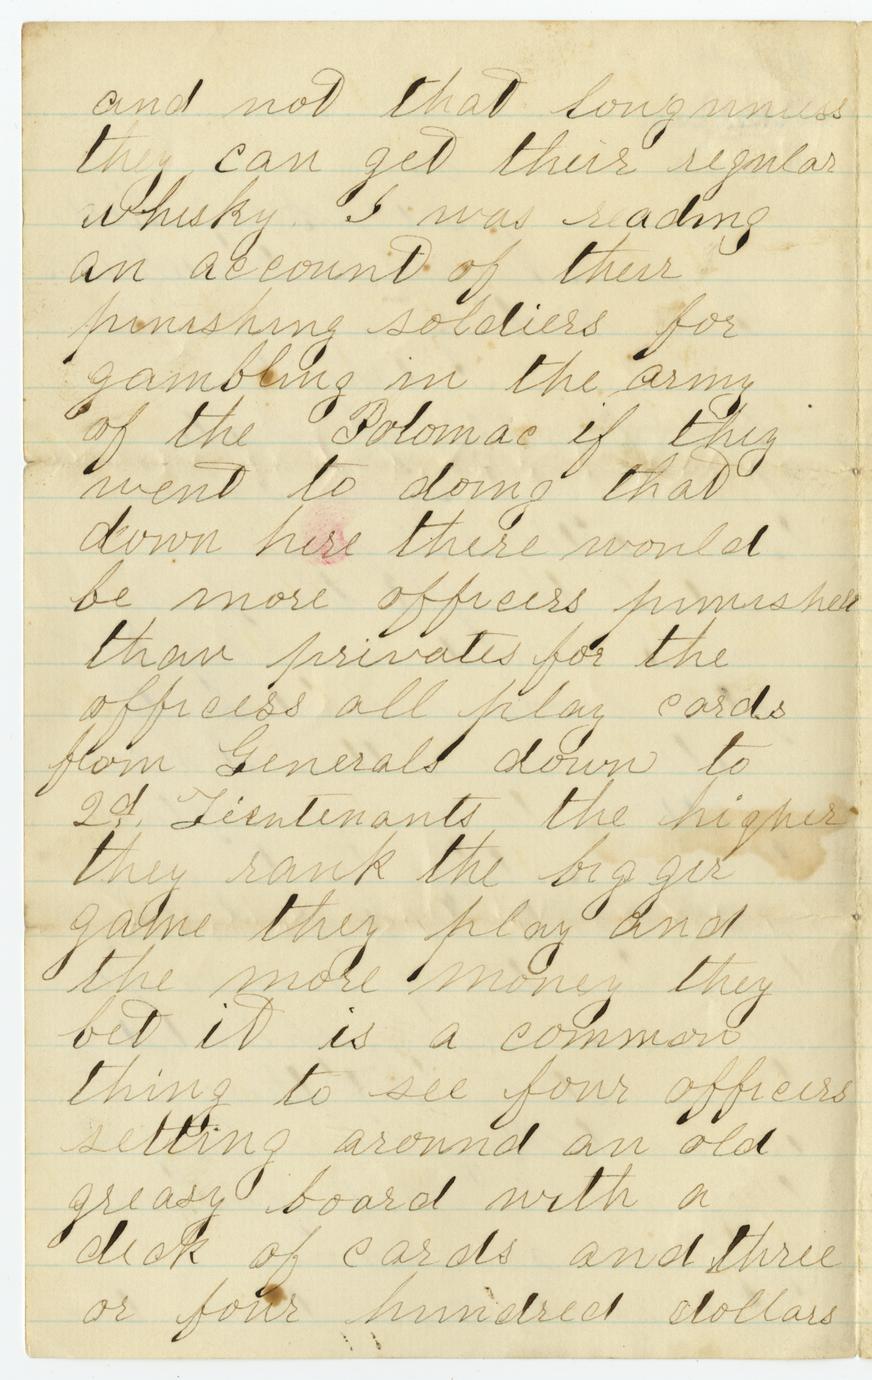 and not that long unless
they can get their regular
whisky. I was reading
an account of their
punishing soldiers for
gambling in the army
of the Potomac if they
went to doing that
down here there would
be more officers punished
than privates for the
officess all play cards
from Generals down to
2d. Lieutenants the higher
they rank the bigger
game they play and
the more money they
bet it is a common
thing to see four officers
setting around an old
greasy board with a
deck of cards and three
or four hundred dollars